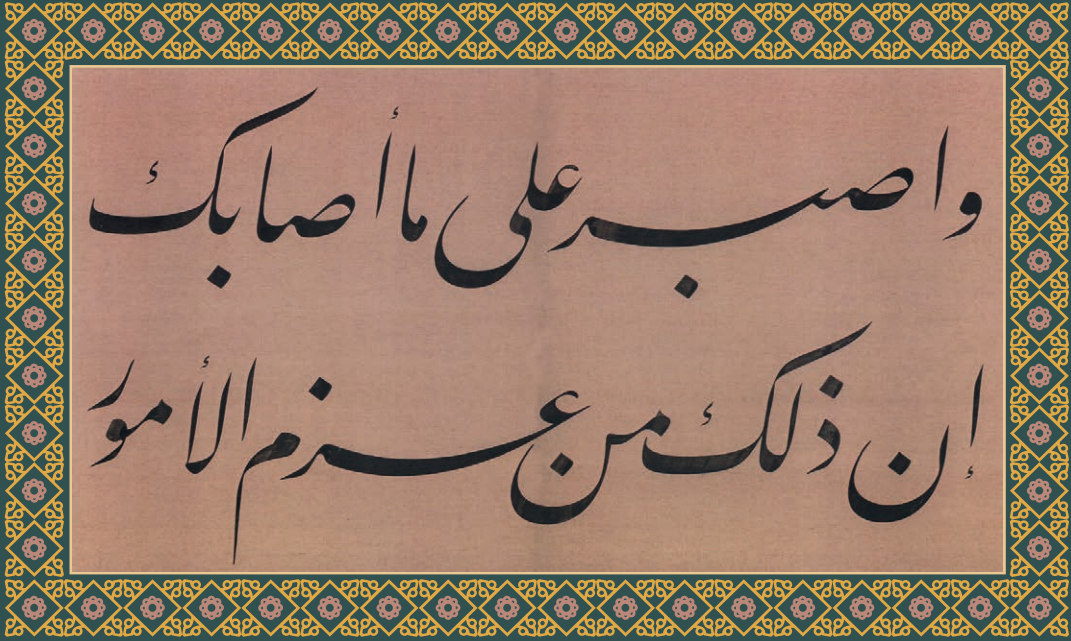 واصبر على ما أصابك
إن ذلك من عزم الأمور